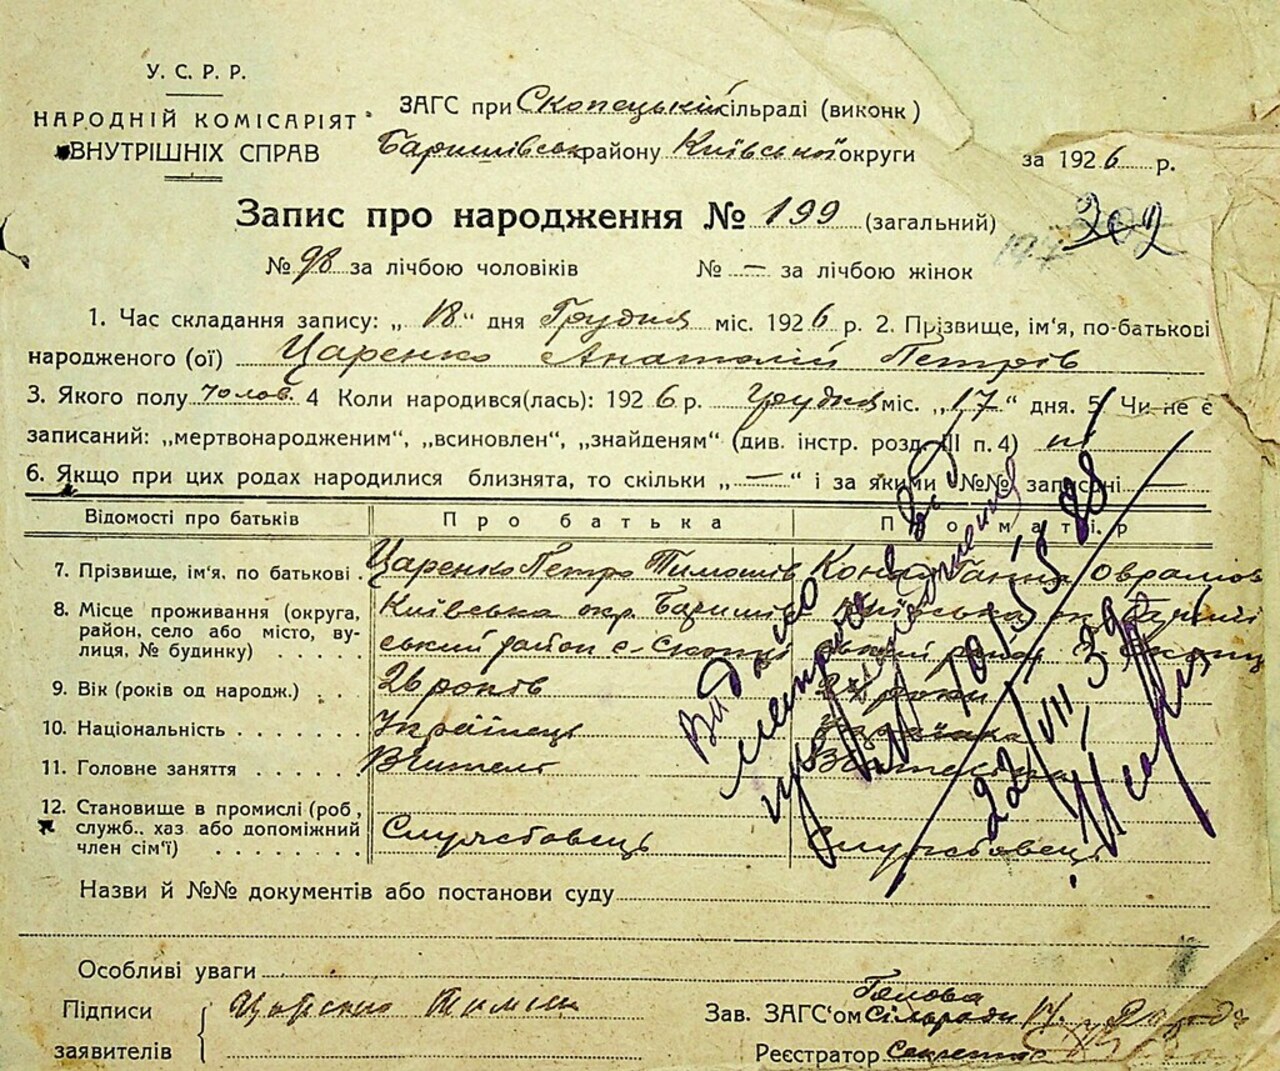 У. С. Р. Р.
НАРОДНІЙ КОМІСАРІЯТ
ВНУТРІШНІХ СПРАВ
ЗАГС при Скопецькій сільраді (виконк)
Баришівськ району Київської округи за 1926 р.
Запис про народження № 199 (загальний)
202
№ 98 за лічбою чоловіків № — за лічбою жінок
1. Час складання запису: „18“ дня Грудня міс. 1926 р. 2. Прізвище, ім'я, по-батькові
народженого (ої) Царенко Анатолій Петрів
3. Якого полу чолов. 4 Коли народився(лась): 1926 р. грудня міс. „17“ дня. 5 Чи не є
записаний: „мертвонародженим“, „всиновлен“, „знайденям“ (див. інстр. розд. III п. 4) ні
6. Якщо при цих родах народилися близнята, то скільки „—“ і за якими №№ записані —
Відомості про батьків Про батька Про матір
7. Прізвище, ім'я, по батькові . Царенко Петро Тимошів Ганна Оврамов
8. Місце проживання (округа, Київська окр. Баришів Київська
район, село або місто, ву- ський район с.
лиця, № будинку) . . . . .
9. Вік (років од народж.) . . . 26 років
10. Національність . . . . . . . Українець
11. Головне заняття . . . . . Вчитель
12. Становище в промислі (роб,
служб.. хаз або допоміжний Службовець Службовець
член сім'ї) . . . . . . . .
Видано
22/VII 39
Назви й №№ документів або постанови суду
Особливі уваги
Підписи
заявителів
Зав. ЗАГС'ом Голова Сільради
Реєстратор